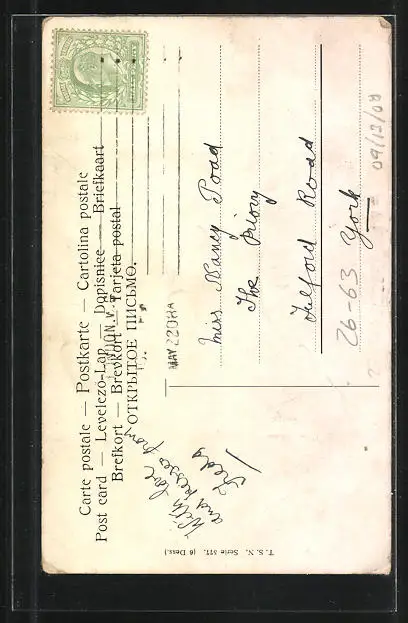 Carte postale — Postkarte — Cartolina postale
Post card — Levelező-Lap — Dopisnice — Briefkaart
Brefkort — Brevkort — Tarjeta postal
ОТКРЫТОЕ ПИСЬМО.
MAY 22 08
With love
and kisses from
Teddy
Miss Nancy Poad
The Priory
Fulford Road
York
26-63
09/12/09
T. S. N. Serie 522. (6 Dess.)